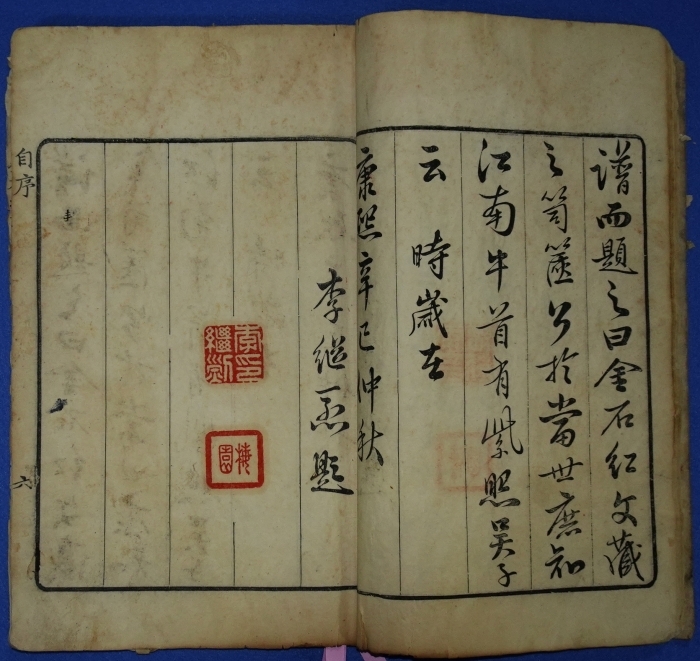 譜而題之曰金石红文藏
之笥篋公於當世庶知
江南牛首有紫照吴子
云 時歲在
康熙辛巳仲秋
李继烈題
李印
繼烈
自序
六